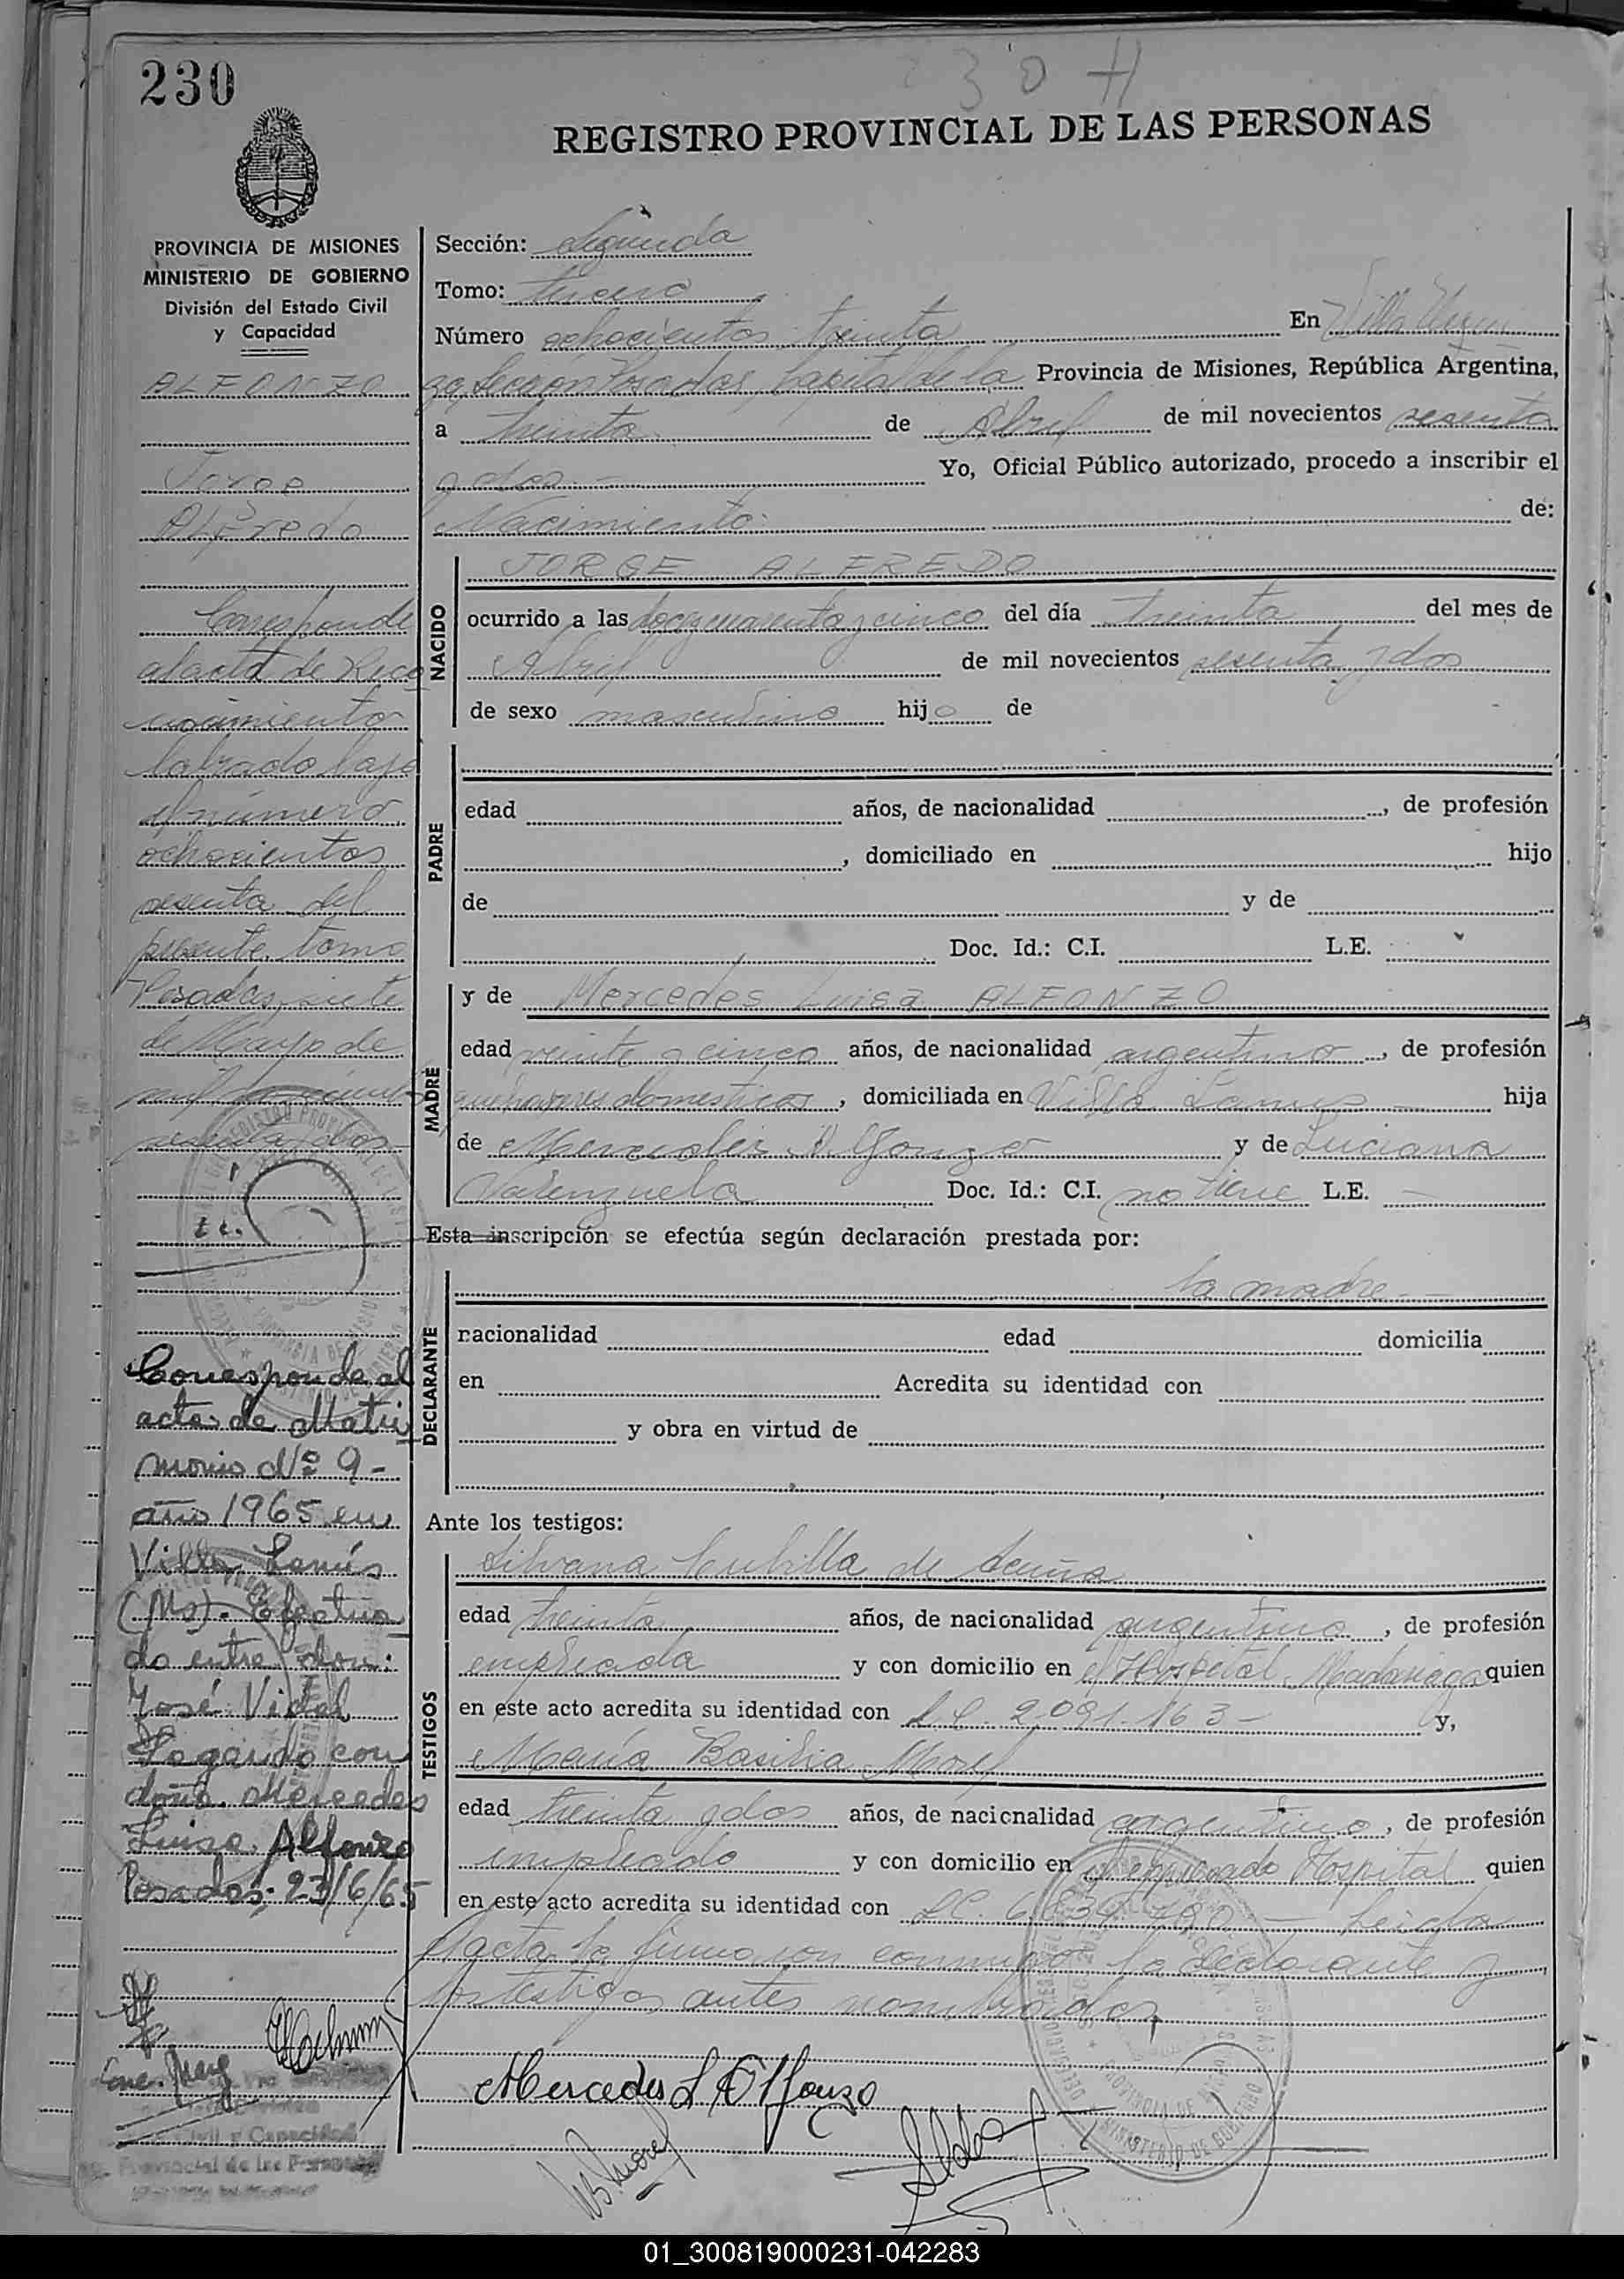 230
30 H
REGISTRO PROVINCIAL DE LAS PERSONAS
PROVINCIA DE MISIONES
MINISTERIO DE GOBIERNO
División del Estado Civil
y Capacidad
ALFONZO
Jorge
Alfredo
Corresponde
al acta de Reco
nocimiento
labrado bajo
el número
ochocientos
sesenta del
presente tomo
Posadas, siete
de Mayo de
mil
sesenta y dos
Corresponde al
acta de Matri
monio Nº 9-
año 1965 en
Villa Lanús
(Ms). Efectua
do entre don:
José Vidal
con
doña Mercedes
Luisa Alfonzo
Posadas: 23/6/65
Sección: Segunda
Tomo: tercero
Número ochocientos treinta En Villa Urqui
za, Seccion Posadas, Capital de la Provincia de Misiones, República Argentina,
a treinta de Abril de mil novecientos sesenta
y dos.- Yo, Oficial Público autorizado, procedo a inscribir el
Nacimiento de:
NACIDO
JORGE ALFREDO
ocurrido a las doce y cuarenta y cinco del día treinta del mes de
Abril de mil novecientos sesenta y dos
de sexo masculino hijo de
PADRE
edad años, de nacionalidad , de profesión
, domiciliado en hijo
de y de
Doc. Id.: C.I. L.E.
MADRE
y de Mercedes Luisa ALFONZO
edad veinte y cinco años, de nacionalidad argentina, de profesión
quehaceres domesticos, domiciliada en Villa Lanus hija
de Alfonzo y de Luciana
Valenzuela Doc. Id.: C.I. no tiene L.E. —
Esta inscripción se efectúa según declaración prestada por:
DECLARANTE
la madre.-
nacionalidad edad domicilia
en Acredita su identidad con
y obra en virtud de
Ante los testigos:
TESTIGOS
Silvana Cubilla de Acuña
edad treinta años, de nacionalidad argentina, de profesión
empleada y con domicilio en el Hospital Madariaga quien
en este acto acredita su identidad con L.C. 2.091.163- y,
María Basilia Morel
edad treinta y dos años, de nacionalidad argentina, de profesión
empleada y con domicilio en el Hospital quien
en este acto acredita su identidad con LC. Leida
el acta la firmaron conmigo la declarante y
los testigos antes nombrados,
Mercedes L Alfonzo
01_300819000231-042283